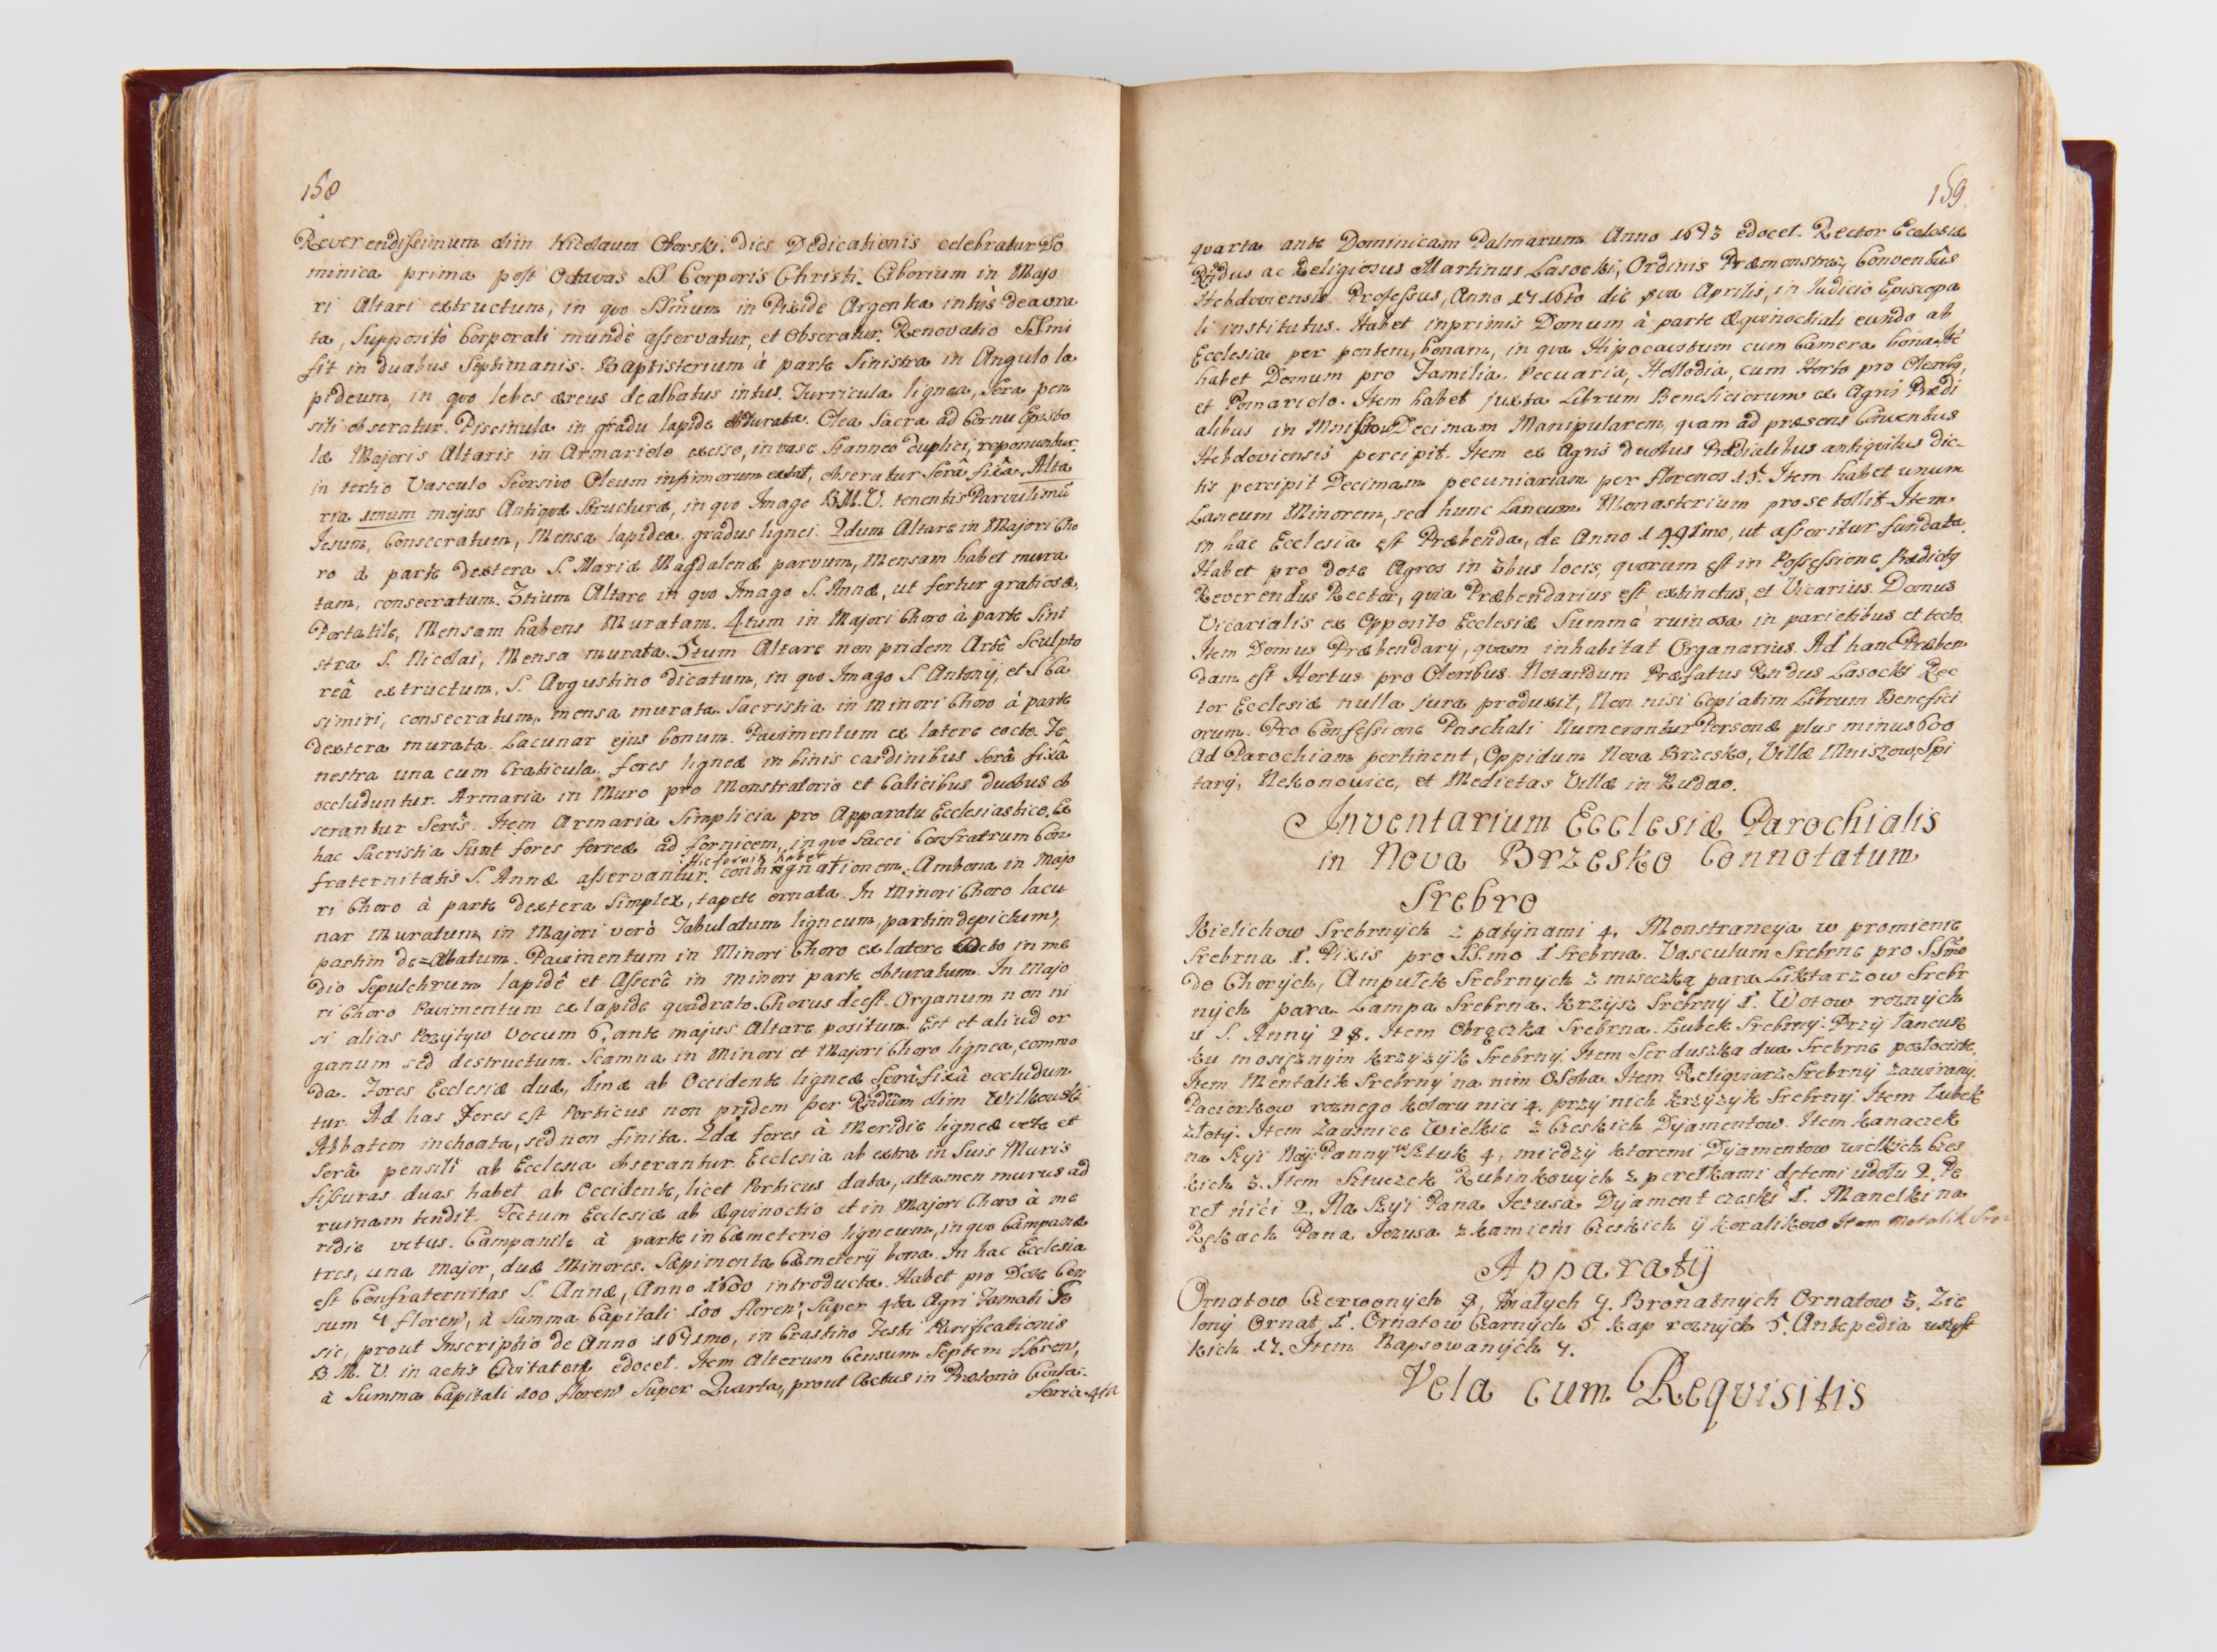 158
Reverendissimum olim Nicolaum Oborski. Dies Dedicationis celebratur Do
minica prima post Octavas SS. Corporis Christi. Ciborium in Majo
ri Altari extructum, in quo SSmum in Pixide Argentea intùs deaura
ta, Suppositô Corporali mundè asservatur, et obseratur. Renovatio SSmi
fit in duabus Septimanis. Baptisterium à parte Sinistra in Angulo la
pideum, in quo lebes æreus dealbatus intus. Turricula lignea, Sera pen
sili obseratur. Piscinula in gradu lapide obturata. Olea Sacra ad Cornu Episto
læ Majoris Altaris in Armariolo exciso, in vase Stanneo duplici, reponuntur.
in tertio Vasculo Seorsivo Oleum infirmorum extat, obseratur Serâ fixâ. Alta
ria unum majus Antiquæ Structuræ, in quo Imago B.M.V. tenentis Parvulimũ
Jesum, Consecratum, Mensa lapidea. gradus lignei. 2dum Altare in Majori Cho
ro à parte dextera S. Mariæ Magdalenæ parvum, Mensam habet mura
tam, consecratum. 3tium Altare in quo Imago S. Annæ, ut fertur gratiosæ,
Portatile, Mensam habens Muratam. 4tum in Majori Choro à parte Sini
stra S. Nicolai, Mensa murata. 5tum Altare non pridem Artê Sculpto
reâ extructum, S. Augustino dicatum, in quo Imago S. Antonij, et S. Ca
simiri, consecratum, mensa murata. Sacristia in minori Choro à parte
dextera murata. Lacunar ejus bonum. Pavimentum ex latere cocto. Fe
nestra una cum Craticula. fores ligneæ in binis cardinibus Serâ fixâ
occluduntur. Armaria in Muro pro Monstratorio et Calicibus duobus ob
serantur Seris. Item Armaria Simplicia pro Apparatu Ecclesiastico. Ex
hac Sacristia Sunt fores ferreæ ad fornicem, in quo Sacci Confratrum Con
: Hic fornix habet
fraternitatis S. Annæ asservantur. contignationem. Ambona in Majo
ri Choro à parte dextera Simplex, tapete ornata. In Minori Choro lacu
nar muratum, in Majori verò Tabulatum ligneum, partim depictum,
partim de=albatum. Pavimentum in Minori Choro ex latere cocto in me
dio Sepulchrum lapidê et Asserê in minori parte obturatum. In Majo
ri Choro Pavimentum ex lapide quadrato. Chorus deest. Organum non ni
si alias Pozytyw Vocum 6, ante majus Altare positum. Est et aliud or
ganum sed destructum. Scamna in Minori et Majori Choro lignea, commo
da. Fores Ecclesiæ duæ, Unæ ab Occidente ligneæ Serâ fixâ occludun
tur. Ad has Fores est Porticus non pridem per Rndum olim Wilkowski
Abbatem inchoata, sed non finita. 2dæ fores à Meridie ligneæ vete et
Serâ pensili ab Ecclesia obserantur. Ecclesia ab extra in Suis Muris
fissuras duas habet ab Occidente, licet Porticus data, attamen murus ad
ruinam tendit. Tectum Ecclesiæ ab Æquinoctio et in Majori Choro à me
ridie vetus. Campanile à parte in Cæmeterio ligneum, in quo Campanæ
tres, una Major, duæ Minores. Sæpimenta Cæmeterij bona. In hac Ecclesia
est Confraternitas S. Annæ, Anno 1600 introducta. Habet pro Dote Cen
sum 7 floren, à Summa Capitali 100 floren, Super 4ta Agri Famati
sic, prout Inscriptio de Anno 1671mo, in Crastino Festi Purificationis
B. M. V. in actis edocet. Item Alterum Censum Septem floren,
à Summa Capitali 100 floren Super Quarta, prout Actus in Prætorio
Feria 4ta
159.
quarta ante Dominicam Palmarum Anno 1693 edocet. Rector Ecclesiæ
Rndus ac Religiosus Martinus Lasocki, Ordinis Præmonstra, Conventûs
Hebdoviensis Professus, Anno die Aprilis, in Iudicio Episcopa
li institutus. Habet inprimis Domum à parte Æquinoctiali eundo ab
Ecclesia per pontem, bonam, in qua Hipocaustum cum Camera bona. Ite
habet Domum pro Familia. Pecuaria, Hollodia, cum Horto pro Olerib9,
et Pomariolo. Item habet juxta Librum Beneficiorum ex Agris Prædi
alibus in Decimam Manipularem, quam ad præsens Conventus
Hebdoviensis percipit. Item ex Agris duobus Prædialibus antiquitus dic-
tis percipit Decimam pecuniariam per florenos 15. Item habet unum
Laneum Minorem, sed hunc Laneum Monasterium pro se tollit. Item
in hac Ecclesia est Præbenda, de Anno 1491mo, ut asseritur fundata.
Habet pro dote Agros in 3bus locis, quorum est in Possessione Prædict9
Reverendus Rector, quia Præbendarius est extinctus, et Vicarius. Domus
Vicarialis ex Opposito Ecclesiæ Summè ruinosa in parietibus et tecto.
Item Domus Præbendarij, quam inhabitat Organarius. Ad hanc Præben
dam est Hortus pro Oleribus. Notandum Præfatus Rndus Lasocki Rec
tor Ecclesiæ nulla jura produxit, Non nisi Copiatim Librum Benefici
orum. Pro Confessione Paschali Numerantur Personæ plus minus 600
Ad Parochiam pertinent, Oppidum Nova Brzesko, Villæ Mniszow, Spi
tary, Nekonowice, et Medietas Villæ in Rudno.
Inventarium Ecclesiæ Parochialis
in Nova Brzesko Connotatum
Srebro
Kielichow Srebrnych z patynami 4. Monstrancya w promienie
Srebrna 1. Pixis pro SS.mo 1 Srebrna. Vasculum Srebrne pro SSmo
do Chorych, Ampułek Srebrnych z miseczką para. Liktarzow Srebr
nych para. Lampa Srebrna. Krzysz Srebrny 1. Wotow roznych
u S. Anny 28. Item Obrączka Srebrna. Zubek Srebrny. Przy łancusz
ku mosięznym krzyzyk Srebrny. Item Serduszka dwa Srebrne pozłociste.
Item Mentalik Srebrny na nim Osoba. Item Reliquiarz Srebrny zawirany.
Paciorkow roznego koloru nici 4. przy nich krzyzyk Srebrny. Item Zubek
złoty. Item Zausnice Wielkie z Czeskich Dyamentow. Item Kanaczek
na Szyi Nay: Panny w Sztuk 4, miedzy ktoremi Dyamentow wielkich Czes
kich 3. Item Sztuczek Rubinkowych z perełkami dętemi u dołu 2. Pe
reł nici 2. Na Szyi Pana Jezusa Dyament czeski 1. Manelki na
Rękach Pana Jezusa z kamieni Czeskich y koralikow Item metalik Sre
Apparaty
Ornatow Czerwonych 8, Białych 7. Bronatnych Ornatow 3. Zie
lony Ornat 1. Ornatow Czarnych 5. Kap roznych 5. Antepedia wszyst
kich 17. Item Rapsowanych 7.
Vela cum Requisitis